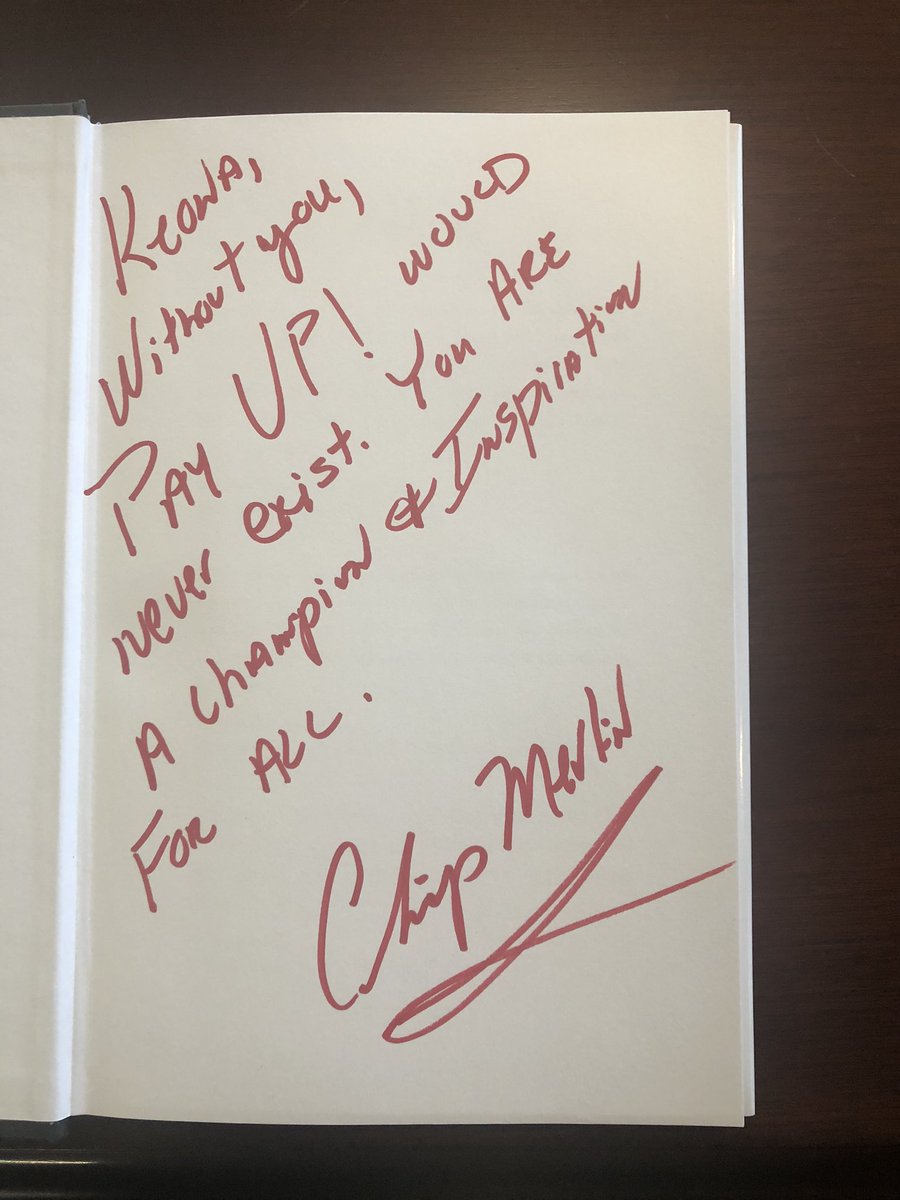 Keona,
Without you,
PAY UP! would
never exist. You ARE
A champion & Inspiration
FOR ALL.
Chip Merlin